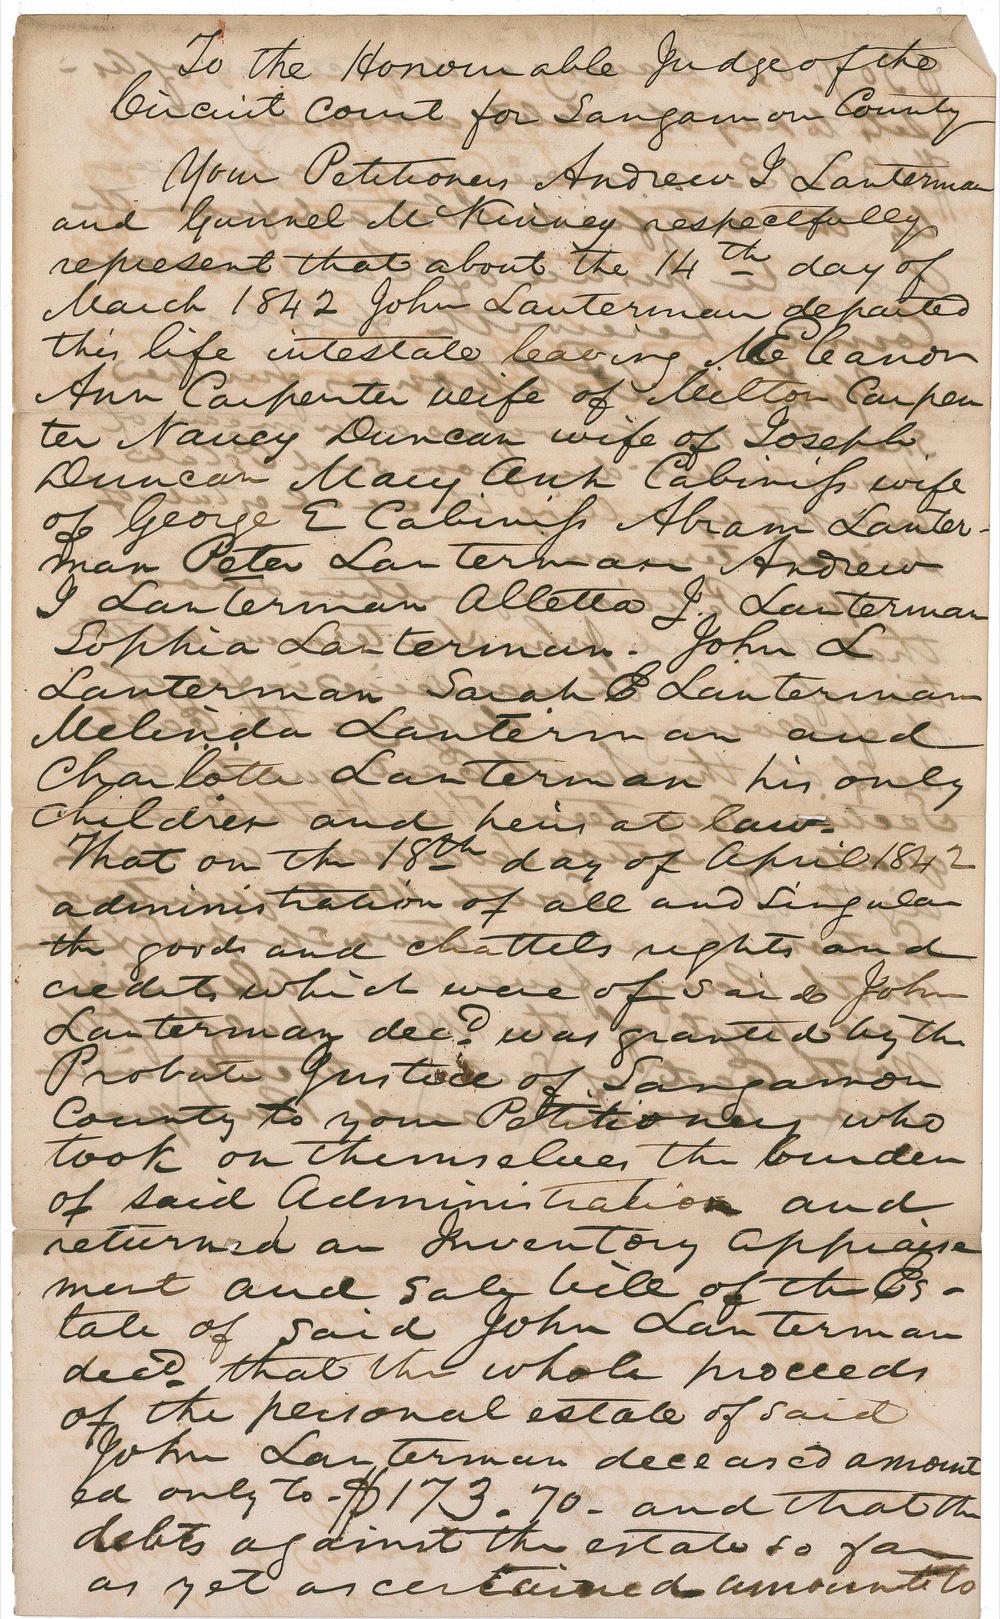 To the Honourable Judge of the
Circuit Court for Sangamon County
Your Petitioners Andrew J Lanterman
and Gunnel McKinney respectfully
represent that about the 14th day of
March 1842 John Lanterman departed
this life intestate leaving Eleanor
Ann Carpenter wife of Milton Carpen
ter Nancy Duncan wife of Joseph
Duncan Mary Ann Cabiniss wife
of George E Cabiniss Abram Lanter-
man Peter Lanterman Andrew
J Lanterman Alletta J. Lanterman
Sophia Lanterman. John L
Lanterman Sarah E Lanterman
Melinda Lanterman and
Charlotte Lanterman his only
children and heirs at law.
That on the 18th day of April 1842
administration of all and Singular
the goods and chattels rights and
credits which were of said John
Lanterman decd. was granted by the
Probate Justice of Sangamon
County to your Petitioners who
took on themselves the burden
of said Administration and
returned an Inventory appraise
ment and Sale bill of the Es-
tate of said John Lanterman
decd. that the whole proceeds
of the personal estate of said
John Lanterman deceased amount
ed only to - $173.70 - and that the
debts against the estate so far
as yet ascertained amounts to